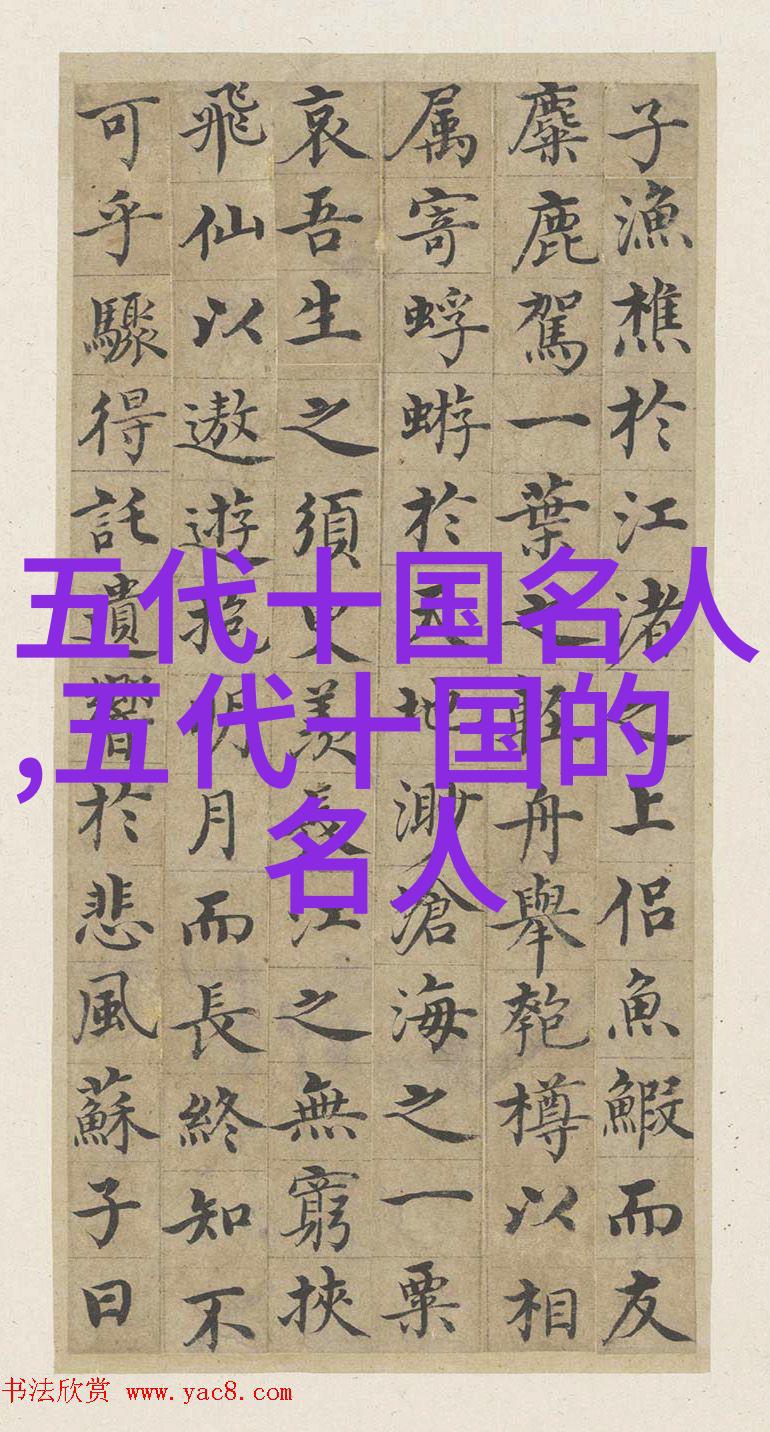 子漁樵於江渚之上侶魚鰕而友
麋鹿駕一葉之輕舟舉匏樽以相
属寄蜉蝣於天地渺滄海之一粟
哀吾生之須臾羨長江之無窮挾
飛仙以遨遊抱明月而長終知不
可乎驟得託遺響於悲風蘇子曰
五代十国名人
,五代十国的
名人
书法欣赏 www.yac8.com